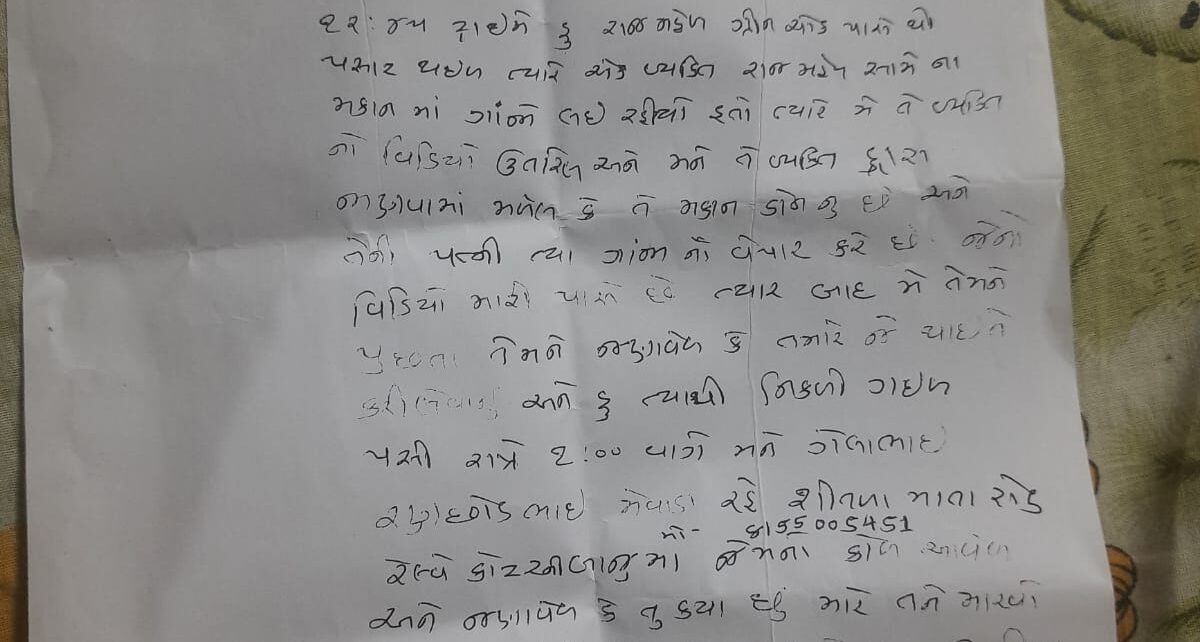 ૨૨:૪૫ ટાઇમે હુ રાજ મહેલ ગ્રીન ચોક પાસે થી
પસાર થયેલ ત્યારે એક વ્યક્તિ રાજ મહેલ સામે ના
મકાન માં ગાંજો લઇ રહીયો હતો ત્યારે મે તે વ્યક્તિ
નો વિડિયો ઉતારેલ અને મને તે વ્યક્તિ દ્વારા
જાણવામાં મળેલ કે તે મકાન કોનુ છે અને
તેની પત્ની ત્યા ગાંજા નો વેપાર કરે છે. જેનો
વિડિયો મારી પાસે છે ત્યાર બાદ મે તેમને
પુછતા તેમને જણાવેલ કે તમારે જે થાઇ તે
કરી લેવાનું અને હુ ત્યાથી નિકળી ગયેલ
પસી રાત્રે ૨:૦૦ વાગે મને ગેલાભાઇ
રણછોડભાઇ મેવાડા રહે શીતળા માતા રોડ
મો-
રેલ્વે કોટરનીબાજુમાં જેમના કોલ આવેલ
અને જણાવેલ કે તુ કયા છું મારે તને મારવો